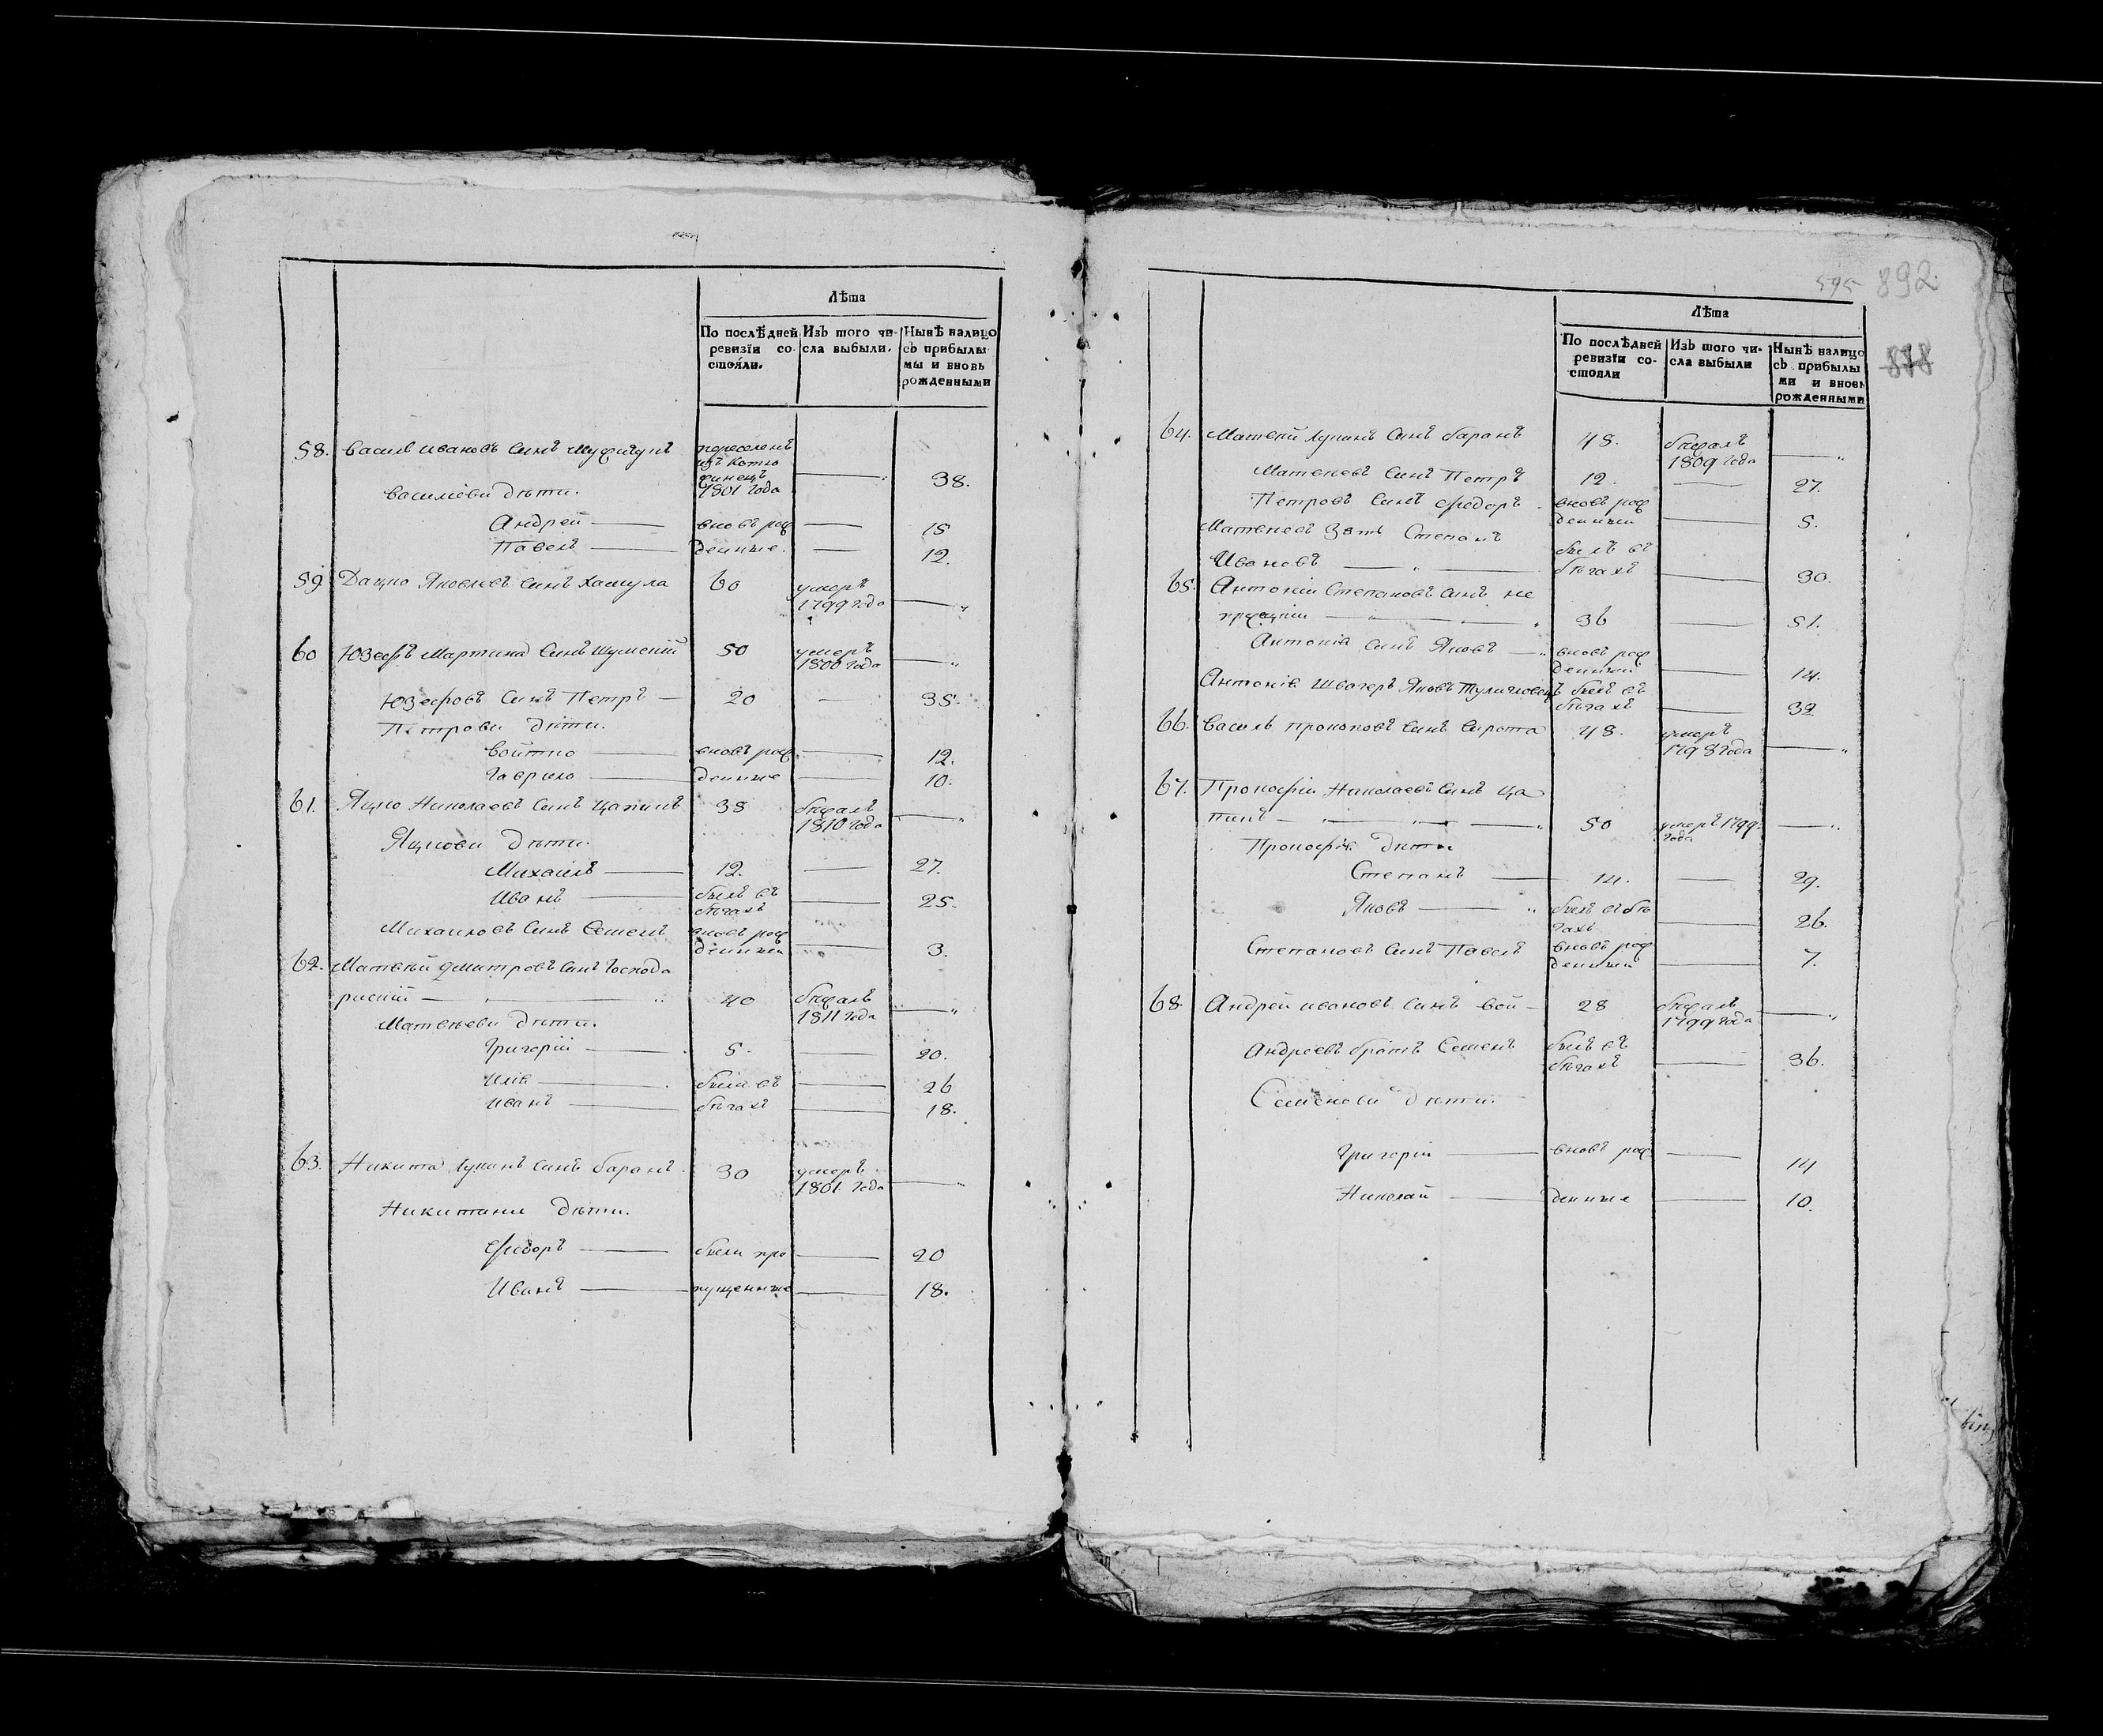 Лѣта
По послѣдней ревизїи со-стояли.
Изъ того чи-сла выбыли.
Нынѣ налицо съ прибылы-мы и вновь рожденными
58. Василь Ивановъ Синъ
переселенъ изъ
1801 года — 38.
Василiеви Дѣти.
Андрей — вновь рож — 15
Павелъ — денные. — 12.
59 Дацко Яковлевъ Синъ Хамула 60 умеръ
1799 года — „
60 Юзефъ Мартина Синъ Шумскiй 50 умеръ
1800 года — „
Юзефовъ Синъ Петръ — 20 — 35.
Петрови Дѣти.
Войтко — вновь рож — 12.
Гаврило — денные — 10.
61. Яцко Николаевъ Синъ Цапинъ 38 бѣжалъ
1810 года — „
Яцкови Дѣти.
Михаилъ — 12. — 27.
Иванъ — былъ въ
бѣгахъ — 25.
Михаиловъ Синъ Семенъ вновь рож
денный — 3.
62. Матвѣй Дмитровъ Синъ Господа
рискiй — „ — „ 40 бѣжалъ
1811 года — „
Матвѣеви Дѣти.
Григорiй — 5. — 20.
Илiя — были въ — 26
Иванъ — бѣгахъ — 18.
63. Никита Лукинъ Синъ Баранъ. 30 умеръ
1801 года — „
Никитины Дѣти.
Федоръ — были про — 20
Иванъ — пущенные — 18.
595 892.
878
Лѣта
По послѣдней ревизїи со-стояли
Изъ того чи-сла выбыли
Нынѣ налицо съ прибылы ми и вновь рожденными
64. Матвѣй Лукинъ Синъ Баранъ 48. бѣжалъ
1809 года — „
Матвѣевъ Синъ Петръ 12. — 27.
Петровъ Синъ Федоръ вновь рож
денный — 5.
Матвѣевъ Зять Степанъ
Ивановъ — „ — былъ въ
бѣгахъ — 30.
65. Антонiй Степановъ Синъ не
— „ — „ 36 — 51.
Антонiя Синъ Яковъ — вновь рож
денный — 14.
Антонiя Швагеръ Яковъ былъ въ
бѣгахъ — 32
66. Василь Прокоповъ Синъ Сирота 48. умеръ
1798 года — „
67. Прокофiй Николаевъ Синъ Ца
пинъ — „ — „ — „ 50 умеръ 1799
года — „
Прокофiя Дѣти
Степанъ — 14. — 29.
Яковъ — „ былъ въ бѣ
гахъ — 26.
Степановъ Синъ Павелъ вновь рож
денный — 7.
68. Андрей Ивановъ Синъ Вой — 28 бѣжалъ
1799 года — „
Андреевъ братъ Семенъ былъ въ
бѣгахъ — 36.
Семенови Дѣти.
Григорiй — вновь рож — 14
Николай — денные — 10.